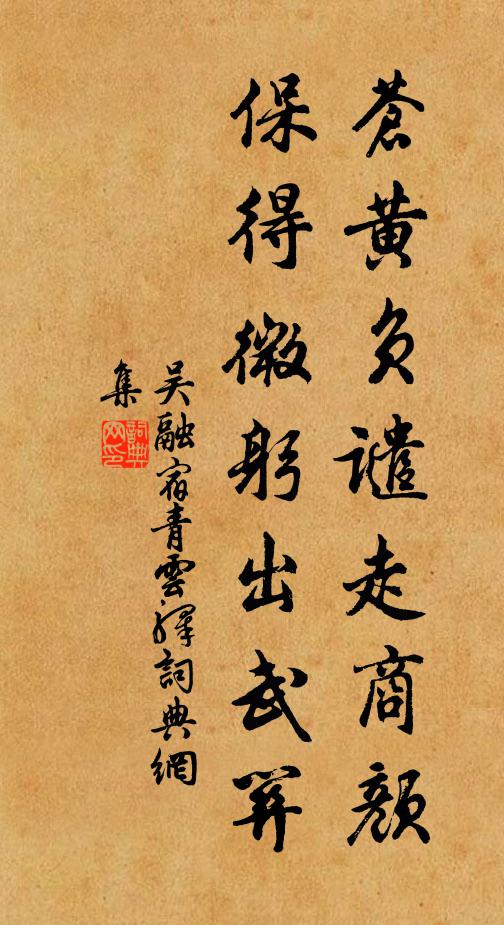 蒼黃負譴走商顏
保得微躬出武關
吳融宿青雲驛詞典網
集
詞典網印